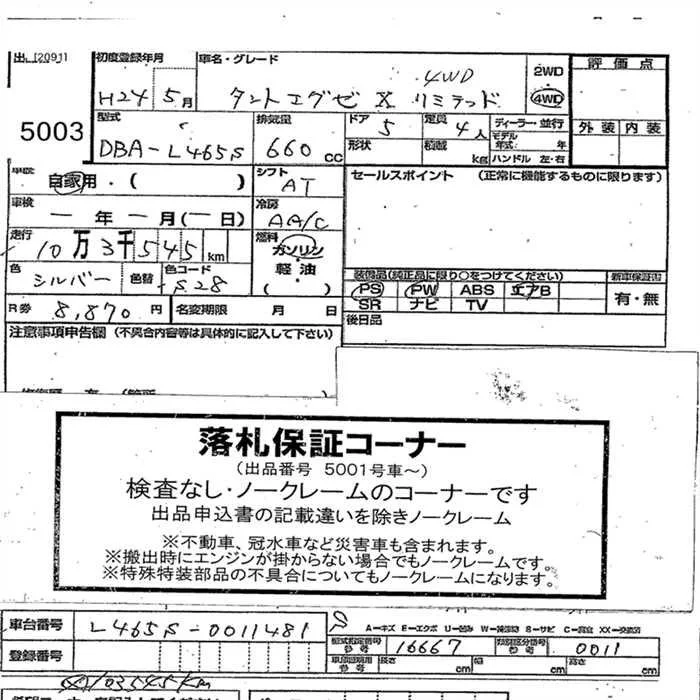 出 [2091]
5003
初度登録年月
H24 5月
車名・グレード
4WD
タントエグゼ X リミテッド
2WD
4WD
評価点
外装 内装
型式
DBA-L465S
排気量
660 cc
ドア 5
定員 4人
形状
積載 kg
ディーラー・並行
モデル年式 年
ハンドル 左・右
車歴
自家用・( )
シフト
AT
セールスポイント (正常に機能するものに限ります)
車検
一年一月(一日)
冷房
AA/C
走行
10万3千545km
燃料
ガソリン
軽油
色
シルバー
色替
色コード
S28
装備品(純正品に限り○をつけてください)
PS PW ABS エアB
SR ナビ TV
新車保証書
有・無
R券 8,870円
名変期限 月 日
後日品
注意事項申告欄 (不具合内容等は具体的に記入して下さい)
落札保証コーナー
(出品番号 5001号車~)
検査なし・ノークレームのコーナーです
出品申込書の記載違いを除きノークレーム
※不動車、冠水車など災害車も含まれます。
※搬出時にエンジンが掛からない場合でもノークレームです。
※特殊特装部品の不具合についてもノークレームになります。
車台番号
L465S-0011481
登録番号
A-キズ E-エクボ U-凹み W-補修跡 S-サビ C-腐食 XX-交換済
型式指定番号 参考
16667
類別区分番号 参考
0011
車庫証明用 参考
長さ cm
幅 cm
高さ cm
103545km